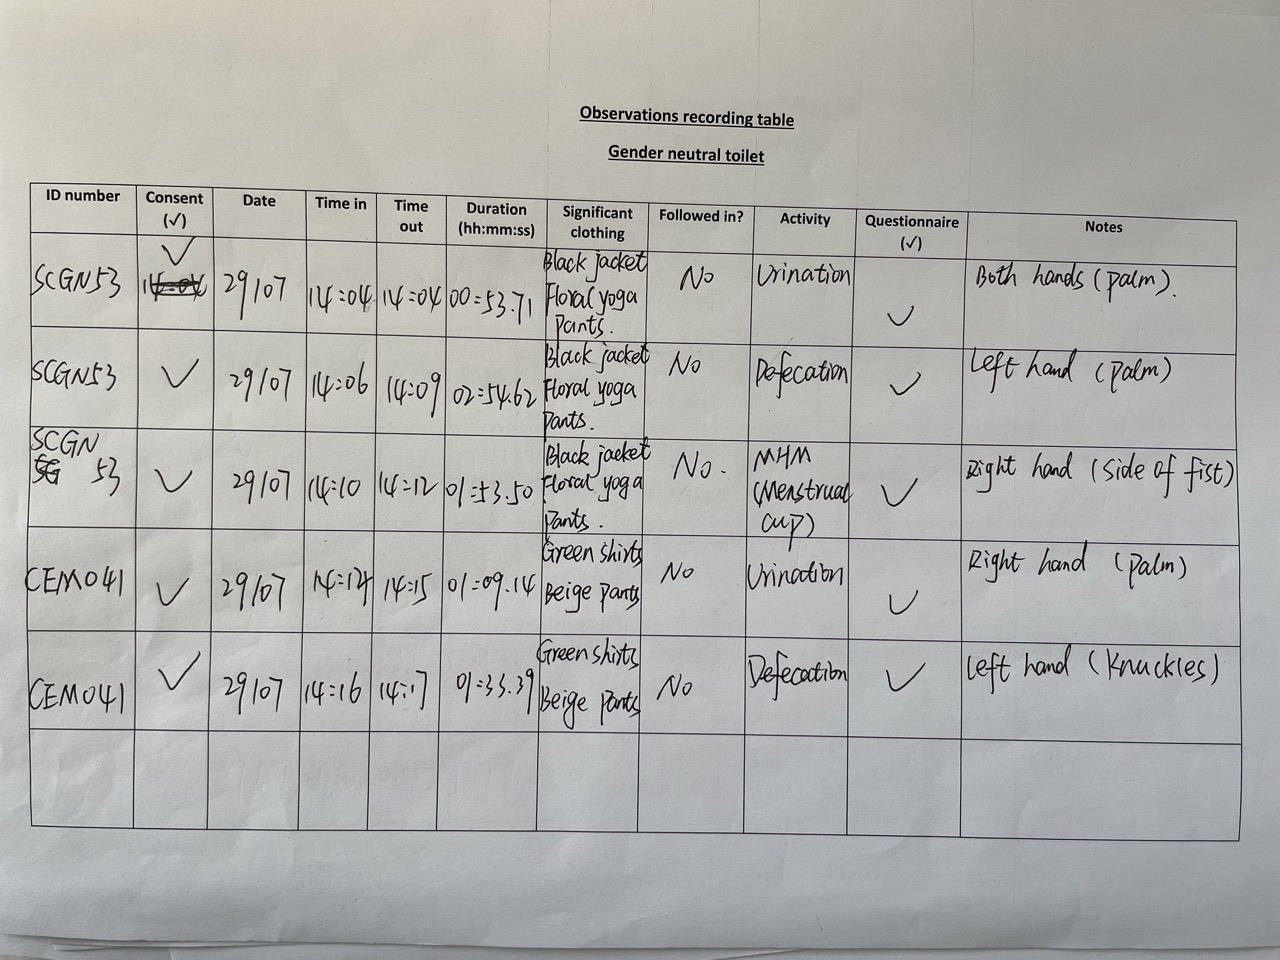 Observations recording table
Gender neutral toilet
ID number Consent (√) Date Time in Time out Duration (hh:mm:ss) Significant clothing Followed in? Activity Questionnaire (√) Notes
SCGN53 ✓ 29/07 14:04 14:04 00:53.71 Black jacket Floral yoga pants. No Urination ✓ Both hands (palm).
SCGN53 ✓ 29/07 14:06 14:09 02:54.62 Black jacket Floral yoga pants. No Defecation ✓ Left hand (palm)
SCGN 53 ✓ 29/07 14:10 14:12 01:53.50 Black jacket Floral yoga pants. No. MHM (Menstrual cup) ✓ Right hand (side of fist)
CEM041 ✓ 29/07 14:15 01:09.14 Green shirts Beige pants No Urination ✓ Right hand (palm)
CEM041 ✓ 29/07 14:16 14:17 Green shirts Beige pants No Defecation ✓ Left hand (knuckles)